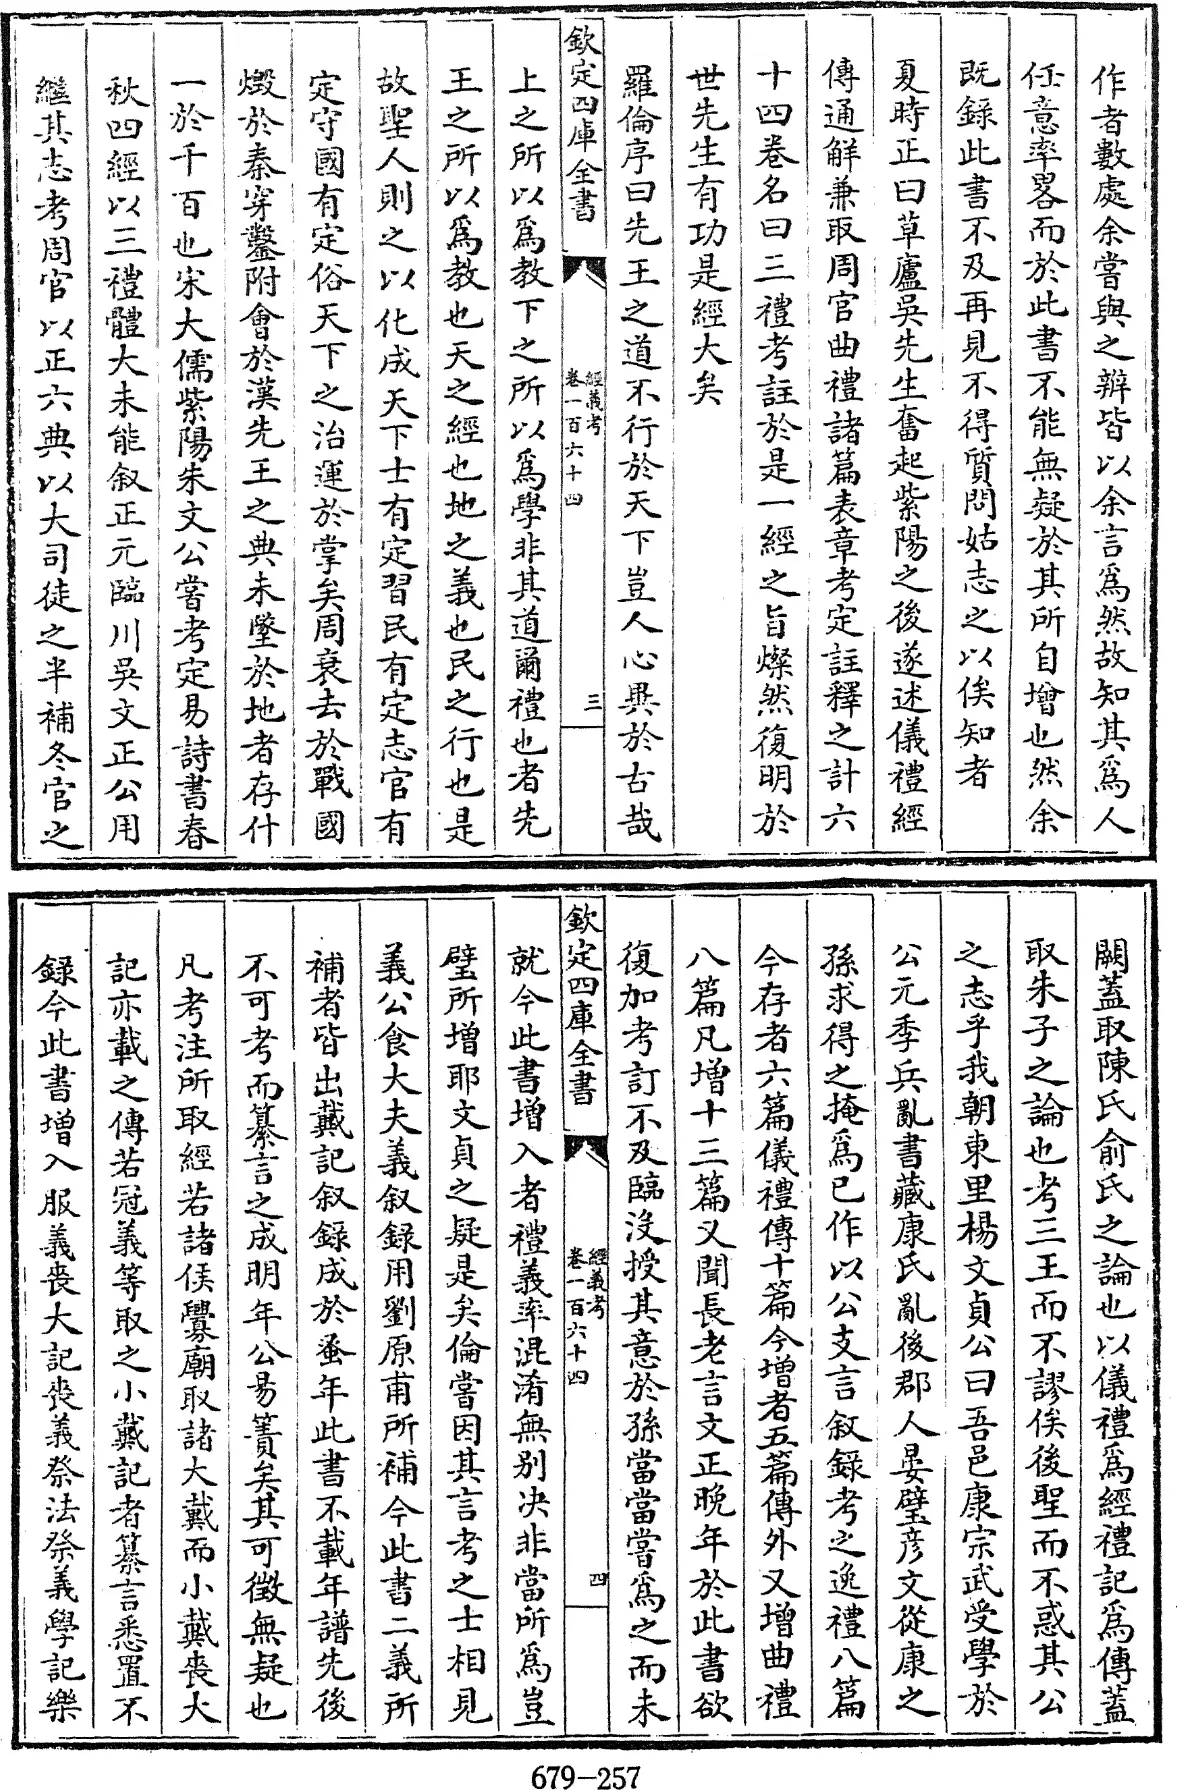 作者數處余嘗與之辯皆以余言爲然故知其爲人
任意率畧而於此書不能無疑於其所自增也然余
既錄此書不及再見不得質問姑志之以俟知者
夏時正曰草廬吳先生奮起紫陽之後遂述儀禮經
傳通解兼取周官曲禮諸篇表章考定註釋之計六
十四卷名曰三禮考註於是一經之旨燦然復明於
世先生有功是經大矣
羅倫序曰先王之道不行於天下豈人心異於古哉
欽定四庫全書
經義考
卷一百六十四
三
上之所以爲教下之所以爲學非其道爾禮也者先
王之所以爲教也天之經也地之義也民之行也是
故聖人則之以化成天下士有定習民有定志官有
定守國有定俗天下之治運於掌矣周衰去於戰國
燬於秦穿鑿附會於漢先王之典未墜於地者存什
一於千百也宋大儒紫陽朱文公嘗考定易詩書春
秋四經以三禮體大未能叙正元臨川吳文正公用
繼其志考周官以正六典以大司徒之半補冬官之
闕蓋取陳氏俞氏之論也以儀禮爲經禮記爲傳蓋
取朱子之論也考三王而不謬俟後聖而不惑其公
之志乎我朝東里楊文貞公曰吾邑康宗武受學於
公元季兵亂書藏康氏亂後郡人晏璧彦文從康之
孫求得之掩爲已作以公支言叙錄考之逸禮八篇
今存者六篇儀禮傳十篇今增者五篇傳外又增曲禮
八篇凡增十三篇又聞長老言文正晚年於此書欲
復加考訂不及臨沒授其意於孫當當嘗爲之而未
欽定四庫全書
經義考
卷一百六十四
四
就今此書增入者禮義率混淆無别决非當所爲豈
璧所增耶文貞之疑是矣倫嘗因其言考之士相見
義公食大夫義叙錄用劉原甫所補今此書二義所
補者皆出戴記叙錄成於蚤年此書不載年譜先後
不可考而纂言之成明年公易簀矣其可徵無疑也
凡考注所取經若諸侯釁廟取諸大戴而小戴喪大
記亦載之傳若冠義等取之小戴記者纂言悉置不
録今此書增入服義喪大記喪義祭法祭義學記樂
679-257